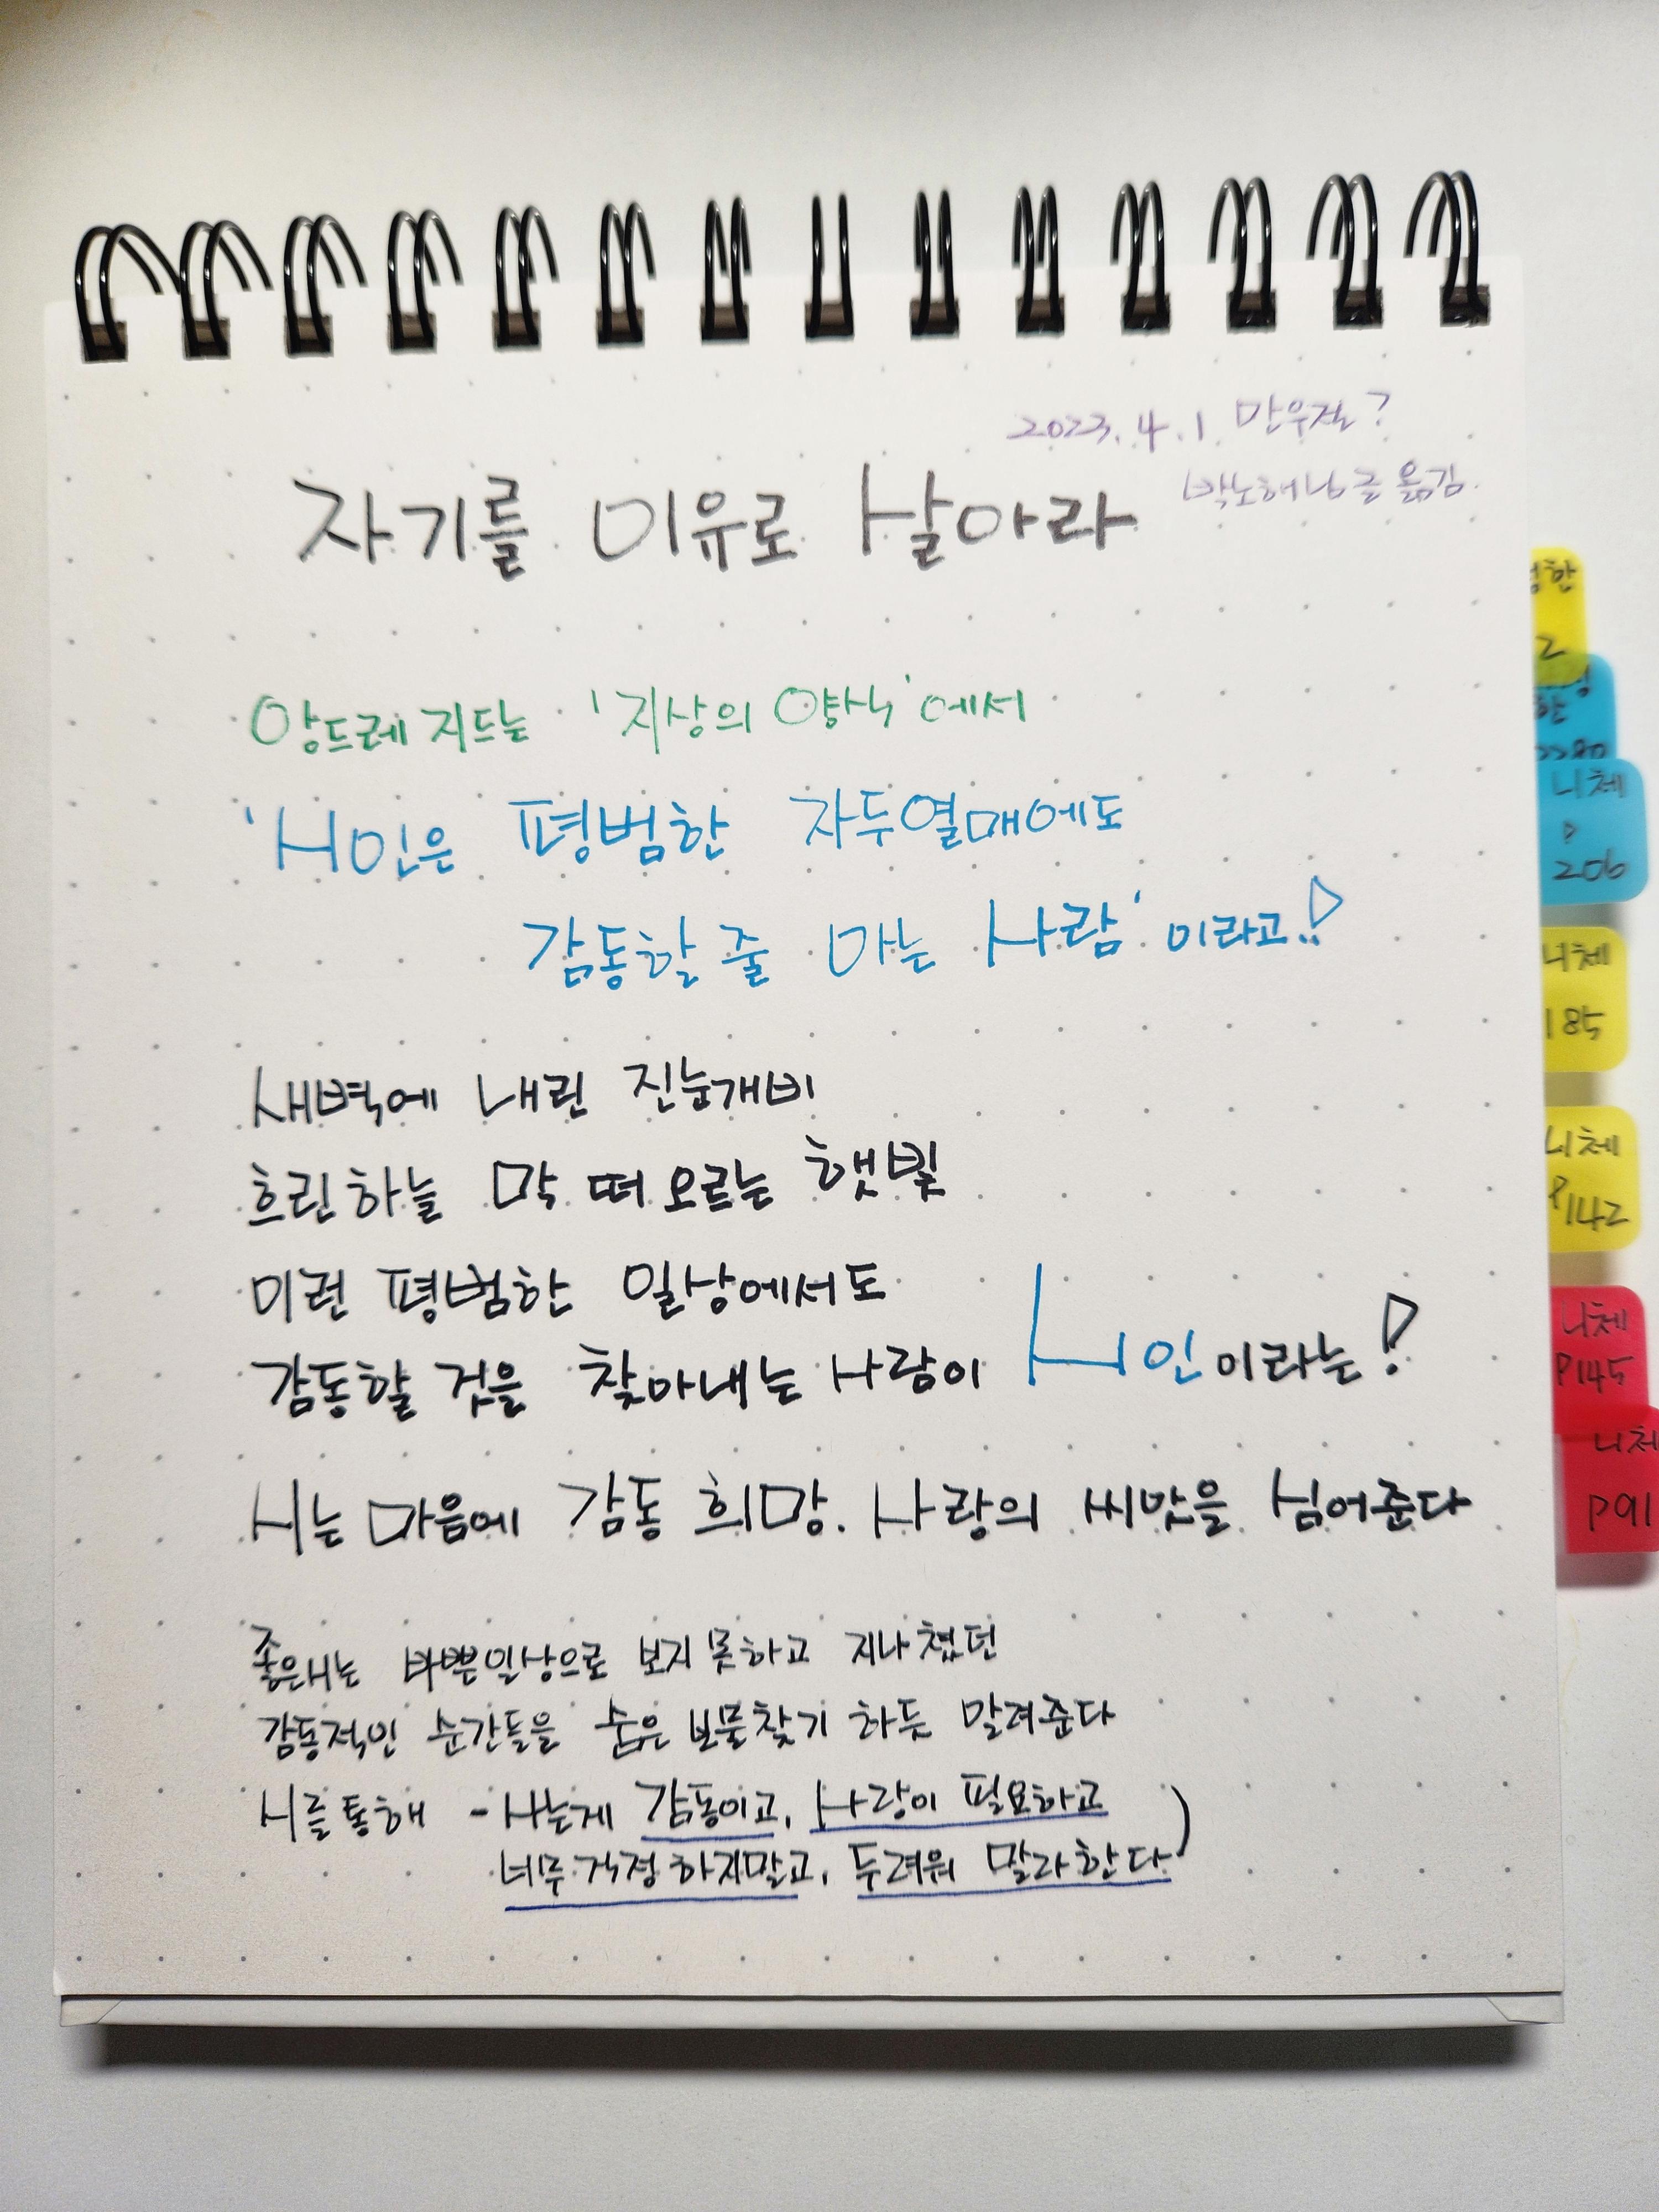 2023.4.1. 만우절?
박노해님 글 옮김.
자기를 이유로 살아라
앙드레 지드는 '지상의 양식'에서
'시인은 평범한 자두열매에도
감동할 줄 아는 사람'이라고!
새벽에 내린 진눈개비
흐린하늘 막 떠오르는 햇빛
이런 평범한 일상에서도
감동할 것을 찾아내는 사람이 시인이라는!
시는 마음에 감동 희망. 사랑의 씨앗을 심어준다
좋은시는 바쁜일상으로 보지 못하고 지나쳤던
감동적인 순간들을 숨은 보물찾기 하듯 알려준다
시를 통해 - 사는게 감동이고, 사랑이 필요하고
너무 걱정하지말고, 두려워 말라한다)
니체
P
206
니체
185
니체
P142
니체
P145
니체
P91